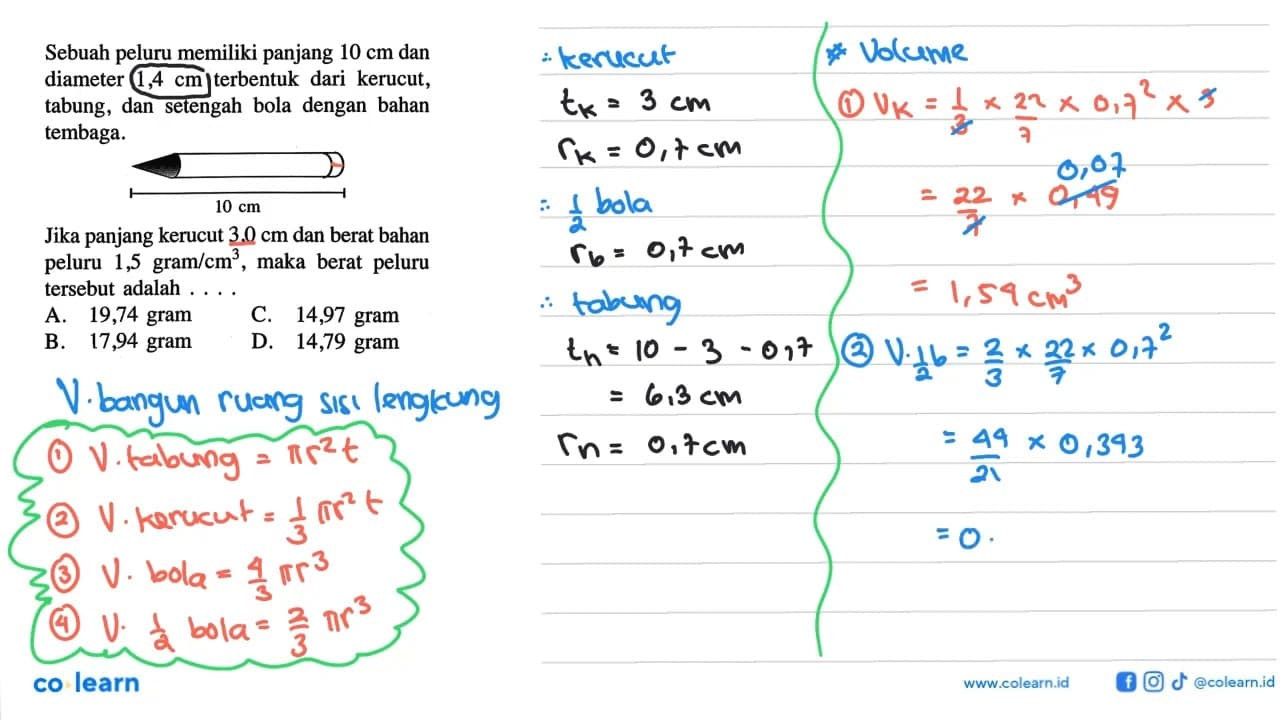 Sebuah peluru memiliki panjang 10 cm dan
diameter 1,4 cm terbentuk dari kerucut,
tabung, dan setengah bola dengan bahan
tembaga.
10 cm
Jika panjang kerucut 3,0 cm dan berat bahan
peluru 1,5 gram/cm³, maka berat peluru
tersebut adalah . . . .
A. 19,74 gram C. 14,97 gram
B. 17,94 gram D. 14,79 gram
V. bangun ruang sisi lengkung
① V. tabung = πr²t
② V. kerucut = 1/3 πr²t
③ V. bola = 4/3 πr³
④ V. 1/2 bola = 2/3 πr³
∴ kerucut
tk = 3 cm
rk = 0,7 cm
∴ 1/2 bola
rb = 0,7 cm
∴ tabung
tn = 10 - 3 - 0,7
= 6,3 cm
rn = 0,7 cm
* Volume
① VK = 1/3 × 22/7 × 0,7² × 3
0,07
= 22/7 × 0,49
= 1,54 cm³
② V. 1/2 b = 2/3 × 22/7 × 0,7²
= 44/21 × 0,393
= 0.
co learn
www.colearn.id
@colearn.id